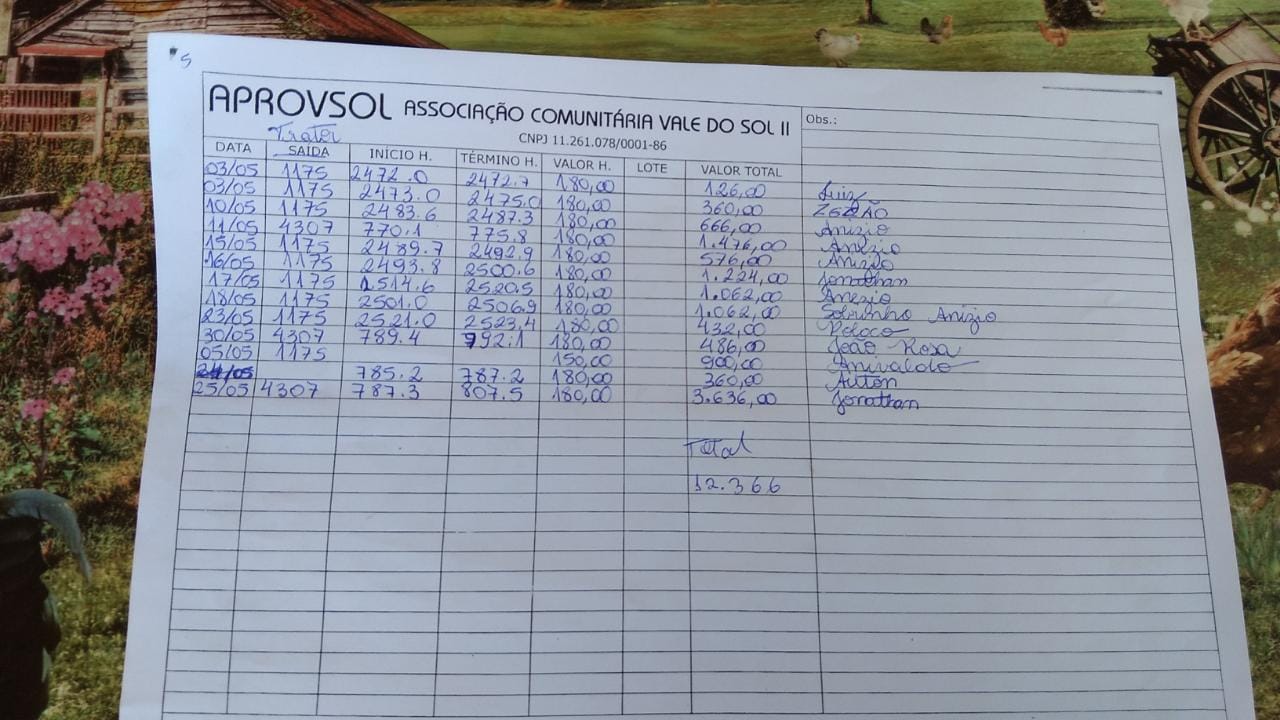 5
APROVSOL ASSOCIAÇÃO COMUNITÁRIA VALE DO SOL II
Obs.:
CNPJ 11.261.078/0001-86
Trator
DATA SAÍDA INÍCIO H. TÉRMINO H. VALOR H. LOTE VALOR TOTAL
03/05 1175 2472.0 2472.7 180,00 126,00 Luiz
03/05 1175 2473.0 2475.0 180,00 360,00 ZEZÃO
10/05 1175 2483.6 2487.3 180,00 666,00 Anizio
11/05 4307 770.1 775.8 180,00 1.476,00 Anizio
15/05 1175 2489.7 2492.9 180,00 576,00 Anizio
16/05 1175 2493.8 2500.6 180,00 1.224,00 Jonathan
17/05 1175 2514.6 2520.5 180,00 1.062,00 Anezio
18/05 1175 2501.0 2506.9 180,00 1.062,00 Sobrinho Anizio
23/05 1175 2521.0 2523,4 180,00 432,00 Peloco
30/05 4307 789.4 792.1 180,00 486,00 João Rosa
05/05 1175 150,00 900,00 Anivaldo
24/05 785.2 787.2 180,00 360,00 Ailton
25/05 4307 787.3 807.5 180,00 3.636,00 Jonathan
Total
12.366